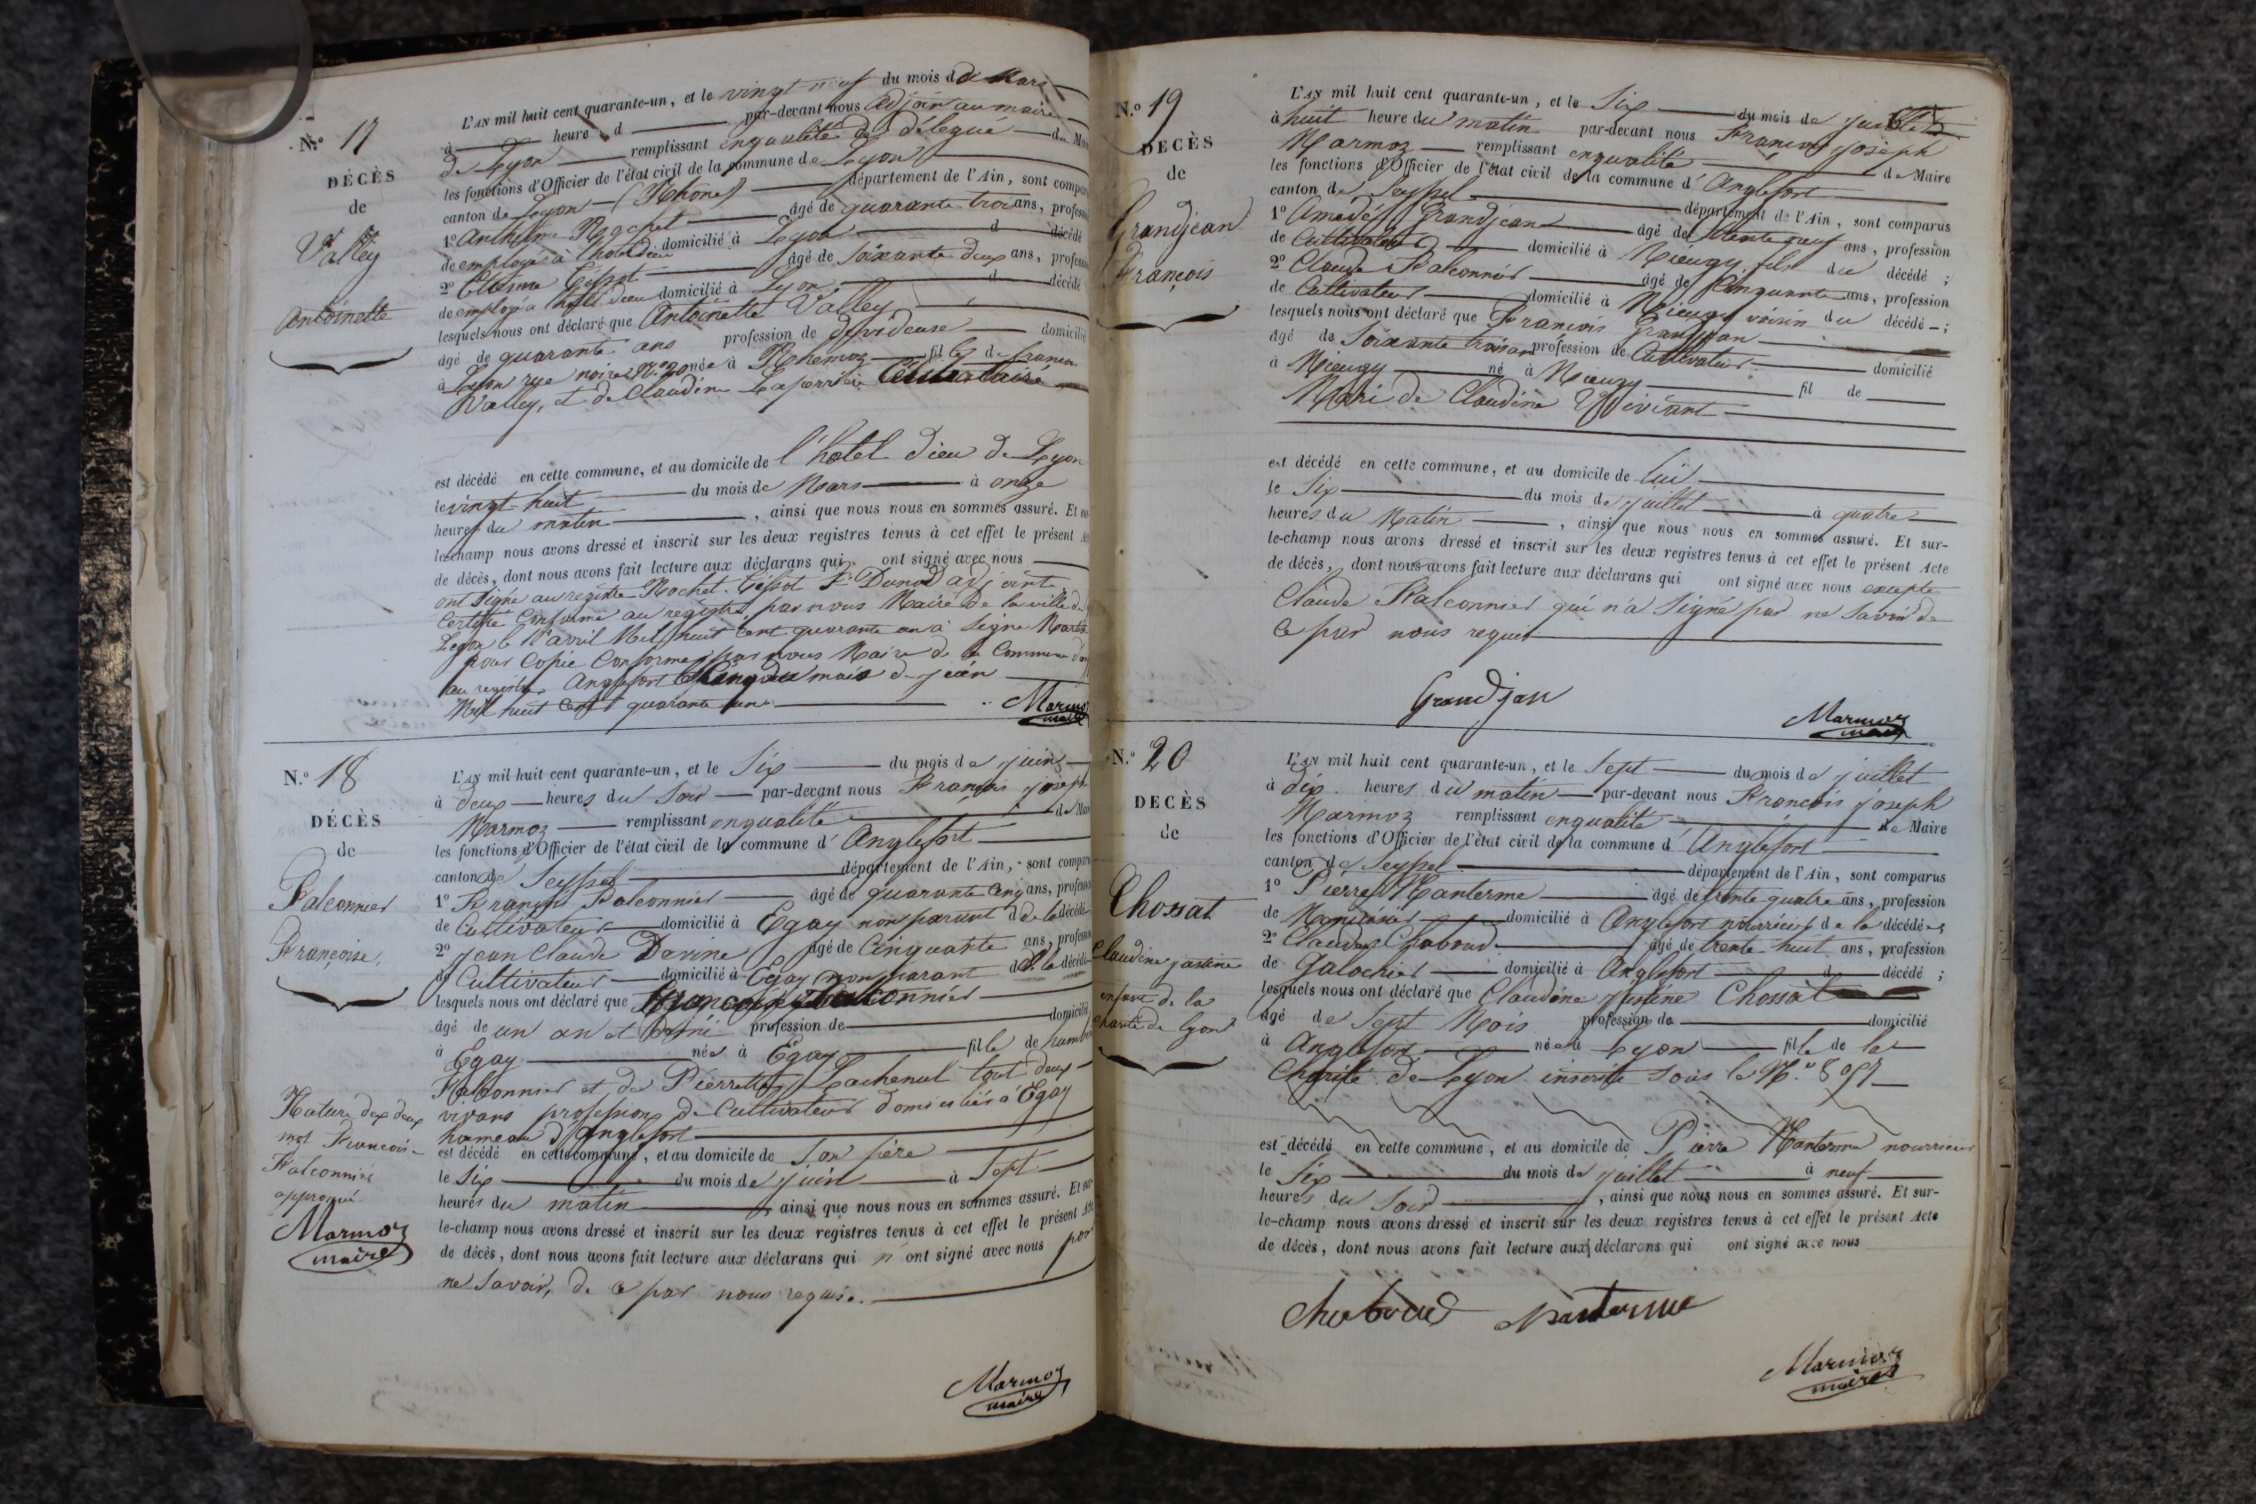 N.o 17
DÉCÈS
de
Valley
Antoinette
L'AN mil huit cent quarante-un, et le vingt neuf du mois de Mars
à heure d par-devant nous adjoint au maire
de Lyon remplissant enqualité de délégué de Mai
les fonctions d'Officier de l'état civil de la commune de Lyon
canton de Lyon (Rhone) département de l'Ain, sont compar
1o Anthelme Rochet âgé de quarante trois ans, profess
de employé à l'hotel dieu domicilié à Lyon d décédé
2o Etienne Cessot âgé de soixante deux ans, profess
de employé a hotel dieu domicilié à Lyon d décédé
lesquels nous ont déclaré que Antoinette Valley
âgé de quarante ans profession de dévideuse domicilié
à Lyon rue noire N.o 20 née à Rohemoz fille de françois
Valley, et de Claudine Laperrière Célibataire
est décédé en cette commune, et au domicile de l'hotel Dieu de Lyon
le vingt huit du mois de Mars à onze
heures du matin, ainsi que nous nous en sommes assuré. Et su
le-champ nous avons dressé et inscrit sur les deux registres tenus à cet effet le présent Ac
de décès, dont nous avons fait lecture aux déclarans qui ont signé avec nous
ont Signé au registre Rochet. Cessot F. Dunod adjoint
Certifié Conforme au registre par nous Maire de la ville de
Lyon le 1er avril Mil huit Cent quarante un à Signé Martin
pour Copie Conforme par nous Maire de la Commune d'an
au registre Anglefort le Cinq du mois de juin
Mil huit Cent quarante un
Marmoz
maire
N.o 18
DÉCÈS
de
Falconnier
Françoise,
L'AN mil huit cent quarante-un, et le Six du mois de juin
à deux heures du Soir par-devant nous François joseph
Marmoz remplissant enqualité de Mai
les fonctions d'Officier de l'état civil de la commune d'Anglefort
canton de Seyssel département de l'Ain, sont compar
1o François Falconnier âgé de quarante Cinq ans, profess
de Cultivateur domicilié à Egay non parant d de la décédé
2o jean Claude Davine âgé de Cinquante ans, profess
de Cultivateur domicilié à Egay non parant d de la décédé
lesquels nous ont déclaré que Françoise Falconnier
âgé de un an et demi profession de domicilié
à Egay née à Egay fille de humb
Falconnier et de Pierrette Lachenal tout deux
vivans profession de Cultivateur domiciliés à Egay
hameau d'Anglefort
est décédé en cette commune, et au domicile de Son père
le Six du mois de juin à Sept
heures du matin, ainsi que nous nous en sommes assuré. Et sur
le-champ nous avons dressé et inscrit sur les deux registres tenus à cet effet le présent Acte
de décès, dont nous avons fait lecture aux déclarans qui n'ont signé avec nous pour
ne Savoir, de ce par nous requis.
Rature des deux
mot Francois
Falconnier
approuvé
Marmoz
maire
Marmoz
maire
N.o 19
DECÈS
de
Grandjean
François
L'AN mil huit cent quarante-un, et le Six du mois de juillet
à huit heure du matin par-devant nous François joseph
Marmoz remplissant enqualité de Maire
les fonctions d'Officier de l'état civil de la commune d'Anglefort
canton de Seyssel département de l'Ain, sont comparus
1o Amedé Grandjean âgé de trente neuf ans, profession
de Cultivateur domicilié à Mieugy fils du décédé ;
2o Claude Falconnier âgé de Cinquante ans, profession
de Cultivateur domicilié à Mieugy voisin du décédé ;
lesquels nous ont déclaré que François Grandjean
âgé de Soixante trois ans profession de Cultivateur domicilié
à Mieugy né à Mieugy fil de
Mari de Claudine Vivient
est décédé en cette commune, et au domicile de lui
le Six du mois de juillet à quatre
heures du Matin, ainsi que nous nous en sommes assuré. Et sur-
le-champ nous avons dressé et inscrit sur les deux registres tenus à cet effet le présent Acte
de décès, dont nous avons fait lecture aux déclarans qui ont signé avec nous excepte
Claude Falconnier qui n'a Signé pour ne Savoir de
ce par nous requis
Grandjan
Marmoz
maire
N.o 20
DECÈS
de
Chossat
Claudine justine
enfant de la
charité de lyon
L'AN mil huit cent quarante-un, et le Sept du mois de juillet
à dix heures du matin par-devant nous François joseph
Marmoz remplissant enqualité de Maire
les fonctions d'Officier de l'état civil de la commune d'Anglefort
canton de Seyssel département de l'Ain, sont comparus
1o Pierre Manterme âgé de trente quatre ans, profession
de domicilié à Anglefort nourricier de la décédée
2o Claude Chaboud âgé de trente huit ans, profession
de Galochier domicilié à Anglefort d décédé ;
lesquels nous ont déclaré que Claudine justine Chossat
âgé de Sept Mois profession de domicilié
à Anglefort née à Lyon fille de la
Charité de Lyon inscrite Sous le N.o
est décédé en cette commune, et au domicile de Pierre Manterme nourricier
le Six du mois de juillet à neuf
heures du Soir, ainsi que nous nous en sommes assuré. Et sur-
le-champ nous avons dressé et inscrit sur les deux registres tenus à cet effet le présent Acte
de décès, dont nous avons fait lecture aux déclarans qui ont signé avec nous
Chaboud Manterme
Marmoz
maire